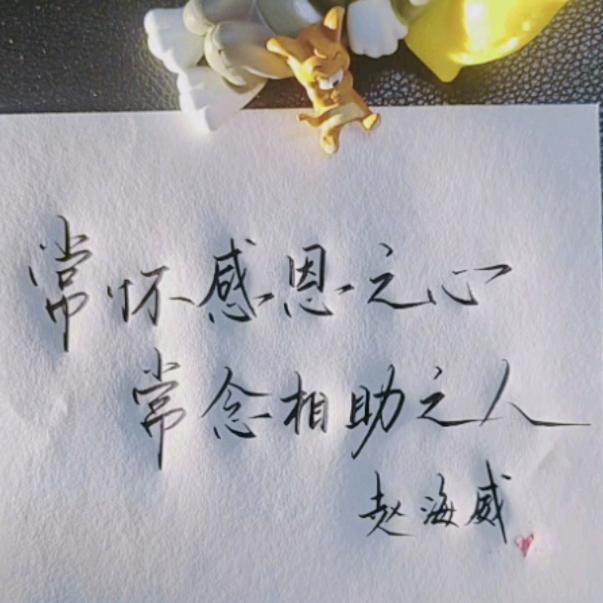 常怀感恩之心
常念相助之人
赵海威